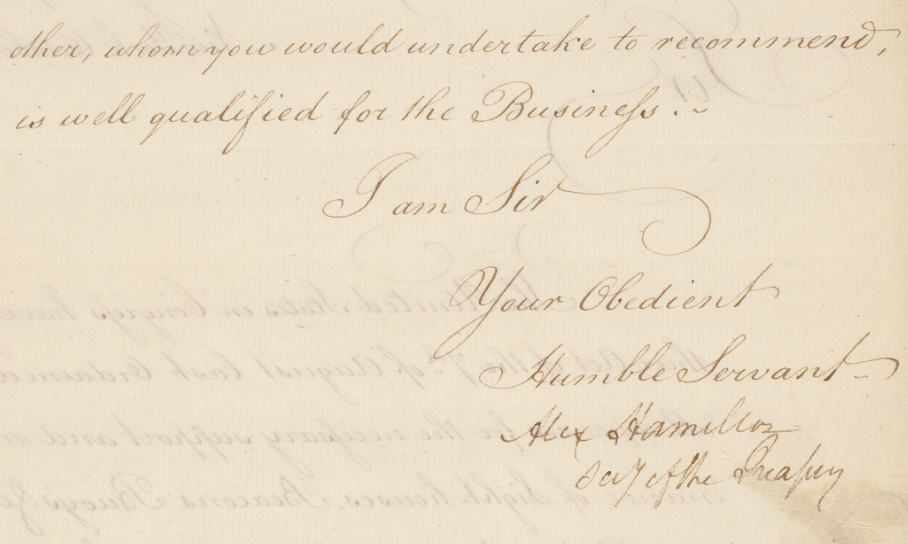 other, whom you would undertake to recommend,
is well qualified for the Business.~
I am Sir
Your Obedient
Humble Servant
Alex Hamilton
Secy of the Treasury